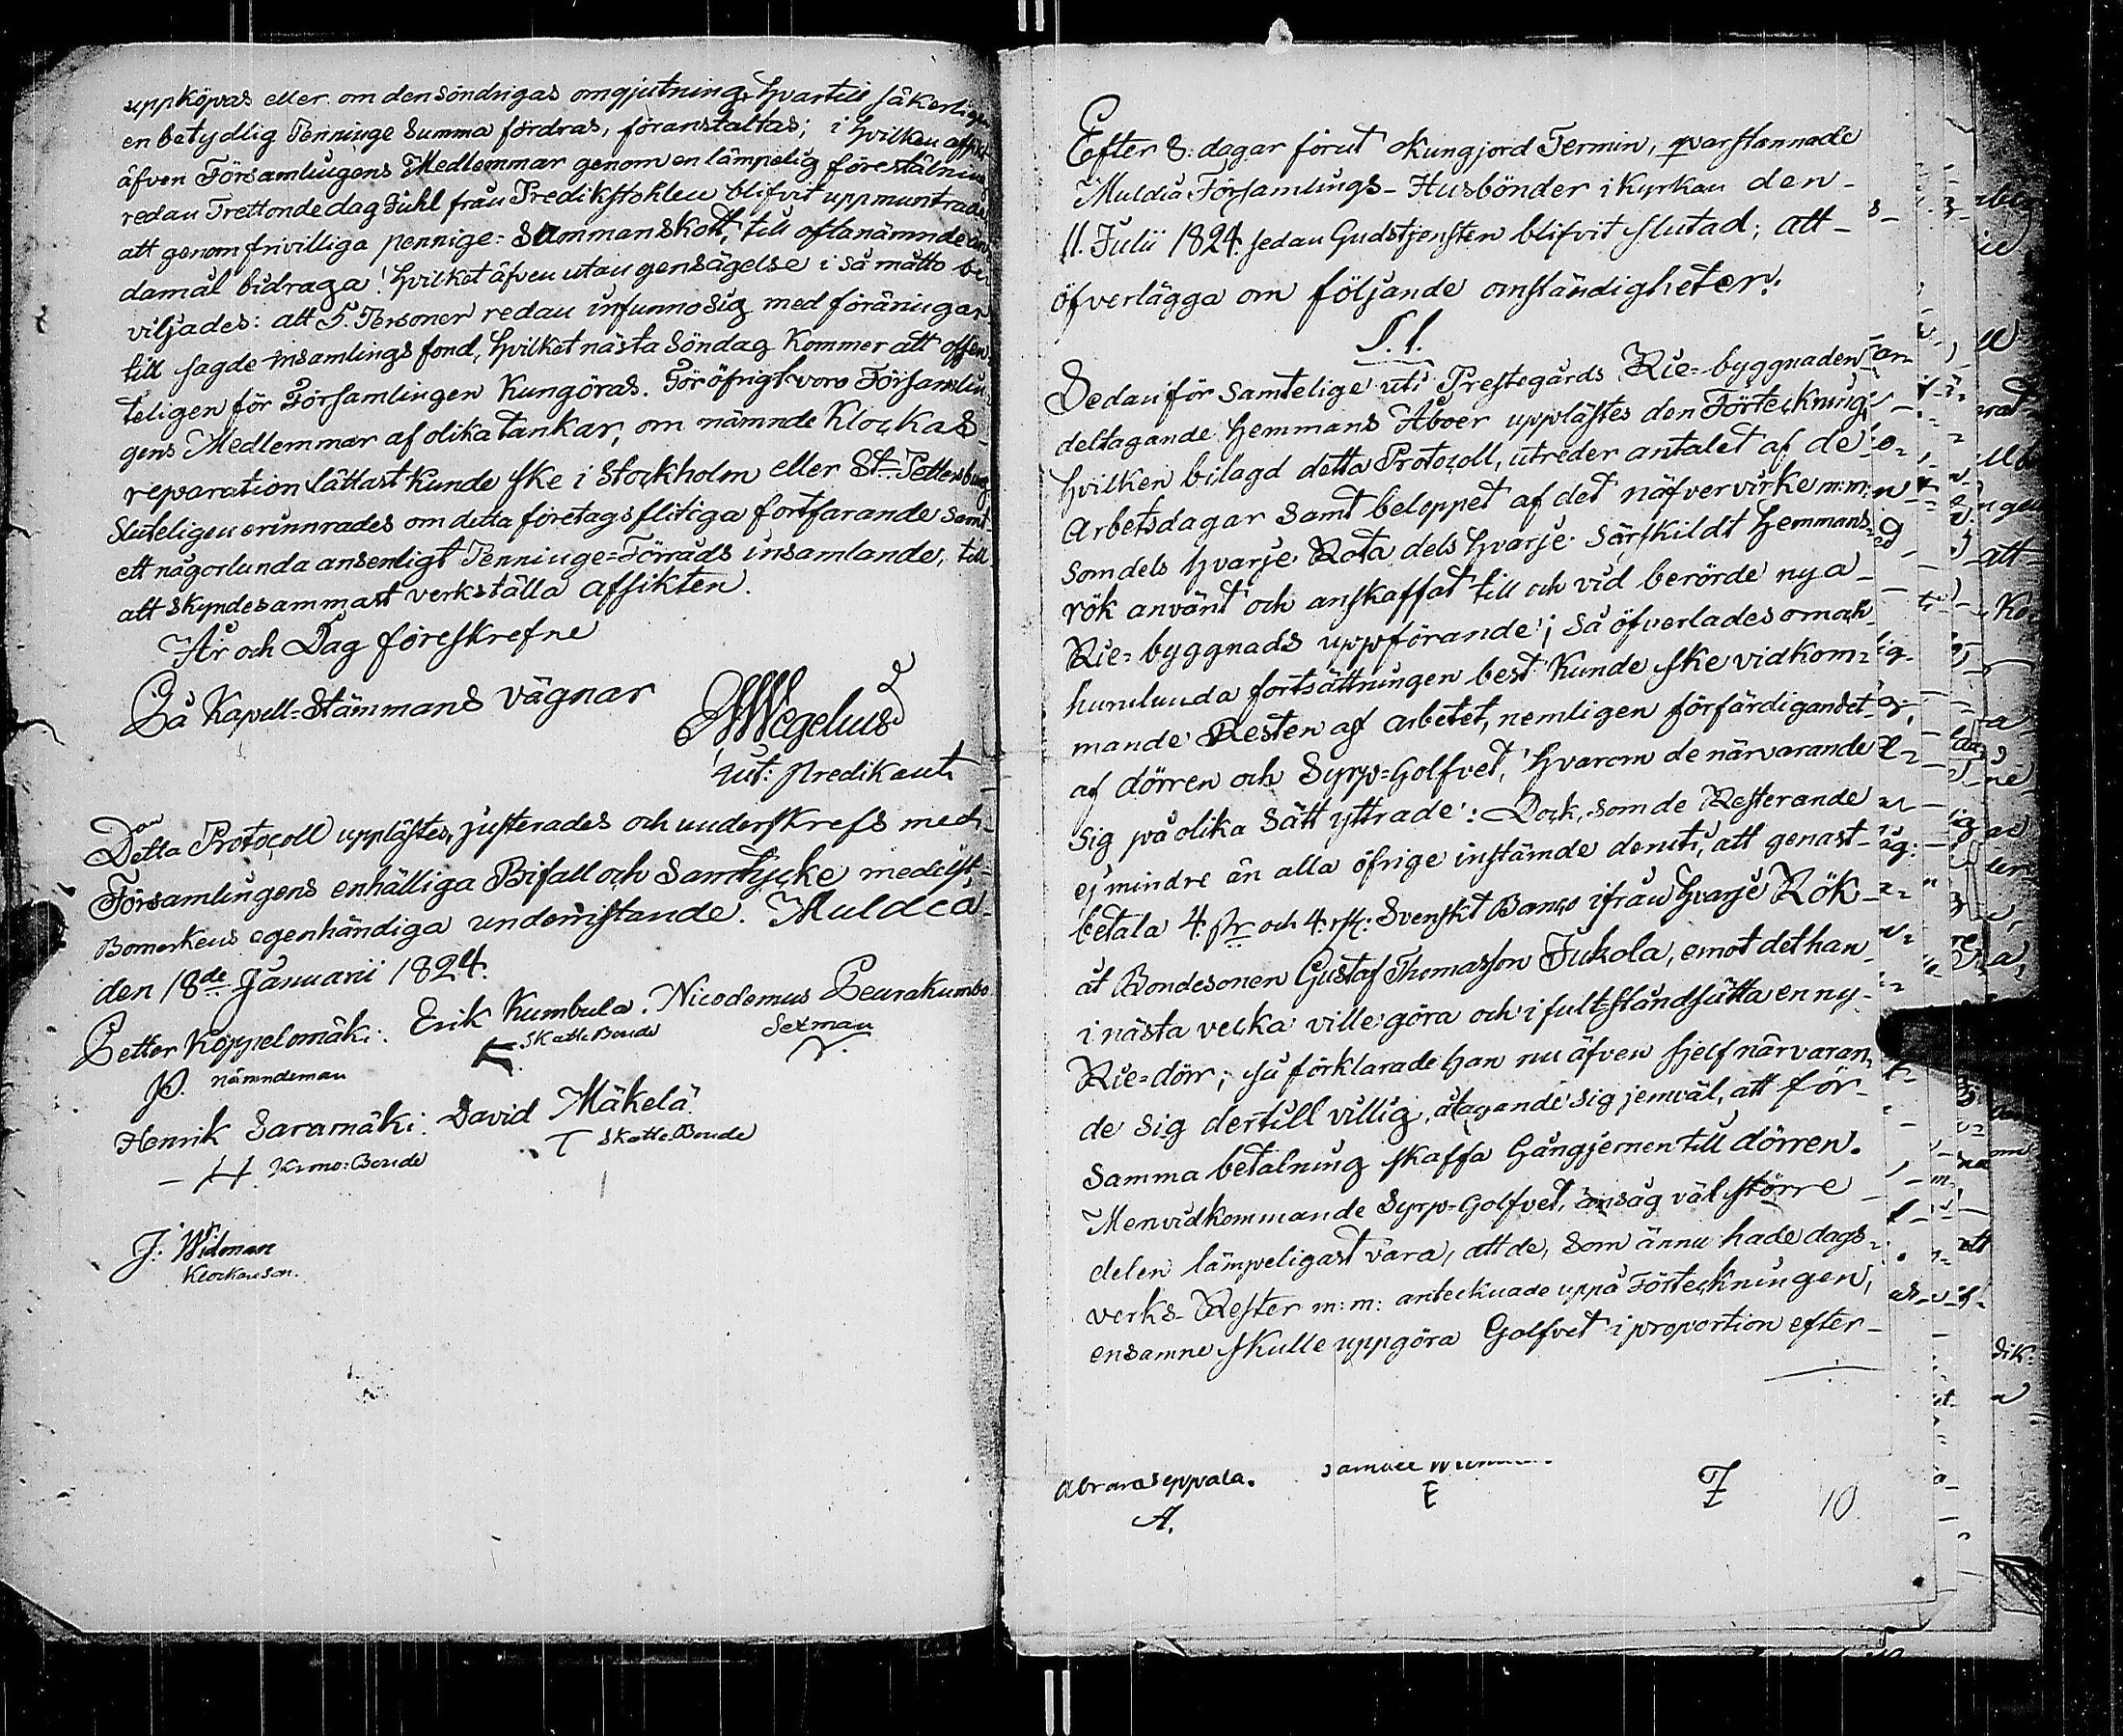 uppköpas eller om den söndrigas omgjutning, hvartill säkerligen
en betydlig Penninge Summa fördras, föranstaltas; i hvilken afsikt
äfven Församlingens Medlemmar genom en lämpelig förestälning
redan Trettondedag Juhl från Predikstohlen blifvit uppmuntrade
att genom frivilliga pennige: Sammanskott, till oftanämnde än-
damål bidraga! hvilket äfven utan gensägelse i så måtto be-
viljades: att 5. Personer redan infunno sig med föräringar
till sagde insamlings fond, hvilket nästa Söndag Kommer att offen-
teligen för Församlingen Kungöras. För öfrigt voro Församlin-
gens Medlemmar af olika tankar, om nämnde Klockas
reparation lättast Kunde ske i Stockholm eller St. Pettersburg
Sluteligen erinnrades om detta företags flitiga fortfarande samt
ett någorlunda ansenligt Penninge=Förråds insamlande, till
att skyndesammast verkställa afsikten.
År och Dag föreskrefne
På Kapell=Stämmans vägnar
Wegelius
ut: predikant
Detta Protocoll upplästes, justerades och underskrefs med
Församlingens enhälliga Bifall och Samtycke medelst
Bomerkens egenhändiga undernistande. Muldia
den 18de Januarii 1824.
Petter Koppelomäki. Erik Kumbula. Nicodemus Peurakumbo
P. nämndeman Skatte Bonde Sexman
Henrik Saramäki. David Mäkelä
H Krono:Bonde T Skatte Bonde
J. Widman
Klockareson.
Efter 8: dagar förut Kungjord Termin, qvarstannade
Muldia Församlings- Husbönder i Kyrkan den-
11. Julii 1824. sedan Gudstjensten blifvit slutad; att-
öfverlägga om följande omständigheter.
S. 1.
Sedan för samtelige uti Prestegårds Rie=byggnaden
deltagande Hemmans Åboer upplästes den Förteckning
hvilken bilagd detta Protocoll, utreder antalet af de
Arbetsdagar samt beloppet af det näfvervirke m:m:
som dels hvarje Rota dels hvarje särskildt Hemmans-
rök använt och anskaffat till och vid berörde nya-
Rie=byggnads uppförande; så öfverlades om och
hurulunda fortsättningen best Kunde ske vidkom=
mande Resten af arbetet, nemligen förfärdigandet
af dörren och Syrp=Golfvet, hvarom de närvarande
sig på olika sätt yttrade: Dock, som de Resterande
ej mindre än alla öfrige instämde deruti, att genast-
betala 4. och 4. Svenskt Banco ifrån hvarje Rök-
åt Bondesonen Gustaf Thomasson Jukola, emot det han
i nästa vecka ville göra och i fult=stånd sätta en ny-
Rie=dörr; så förklarade han nu äfven sjelf närvaran-
de sig dertill villig, åtagande sig jemväl, att för-
samma betalning skaffa Gångjernen till dörren.
Men vidkommande Syrp-Golfvet, ansåg väl större
delen lämpeligast vara, att de, som ännu hade dags=
verks-Rester m:m: antecknade uppå Förteckningen,
ensamne skulle uppgöra Golfvet i proportion efter-
Abram Seppala.
A. E 10